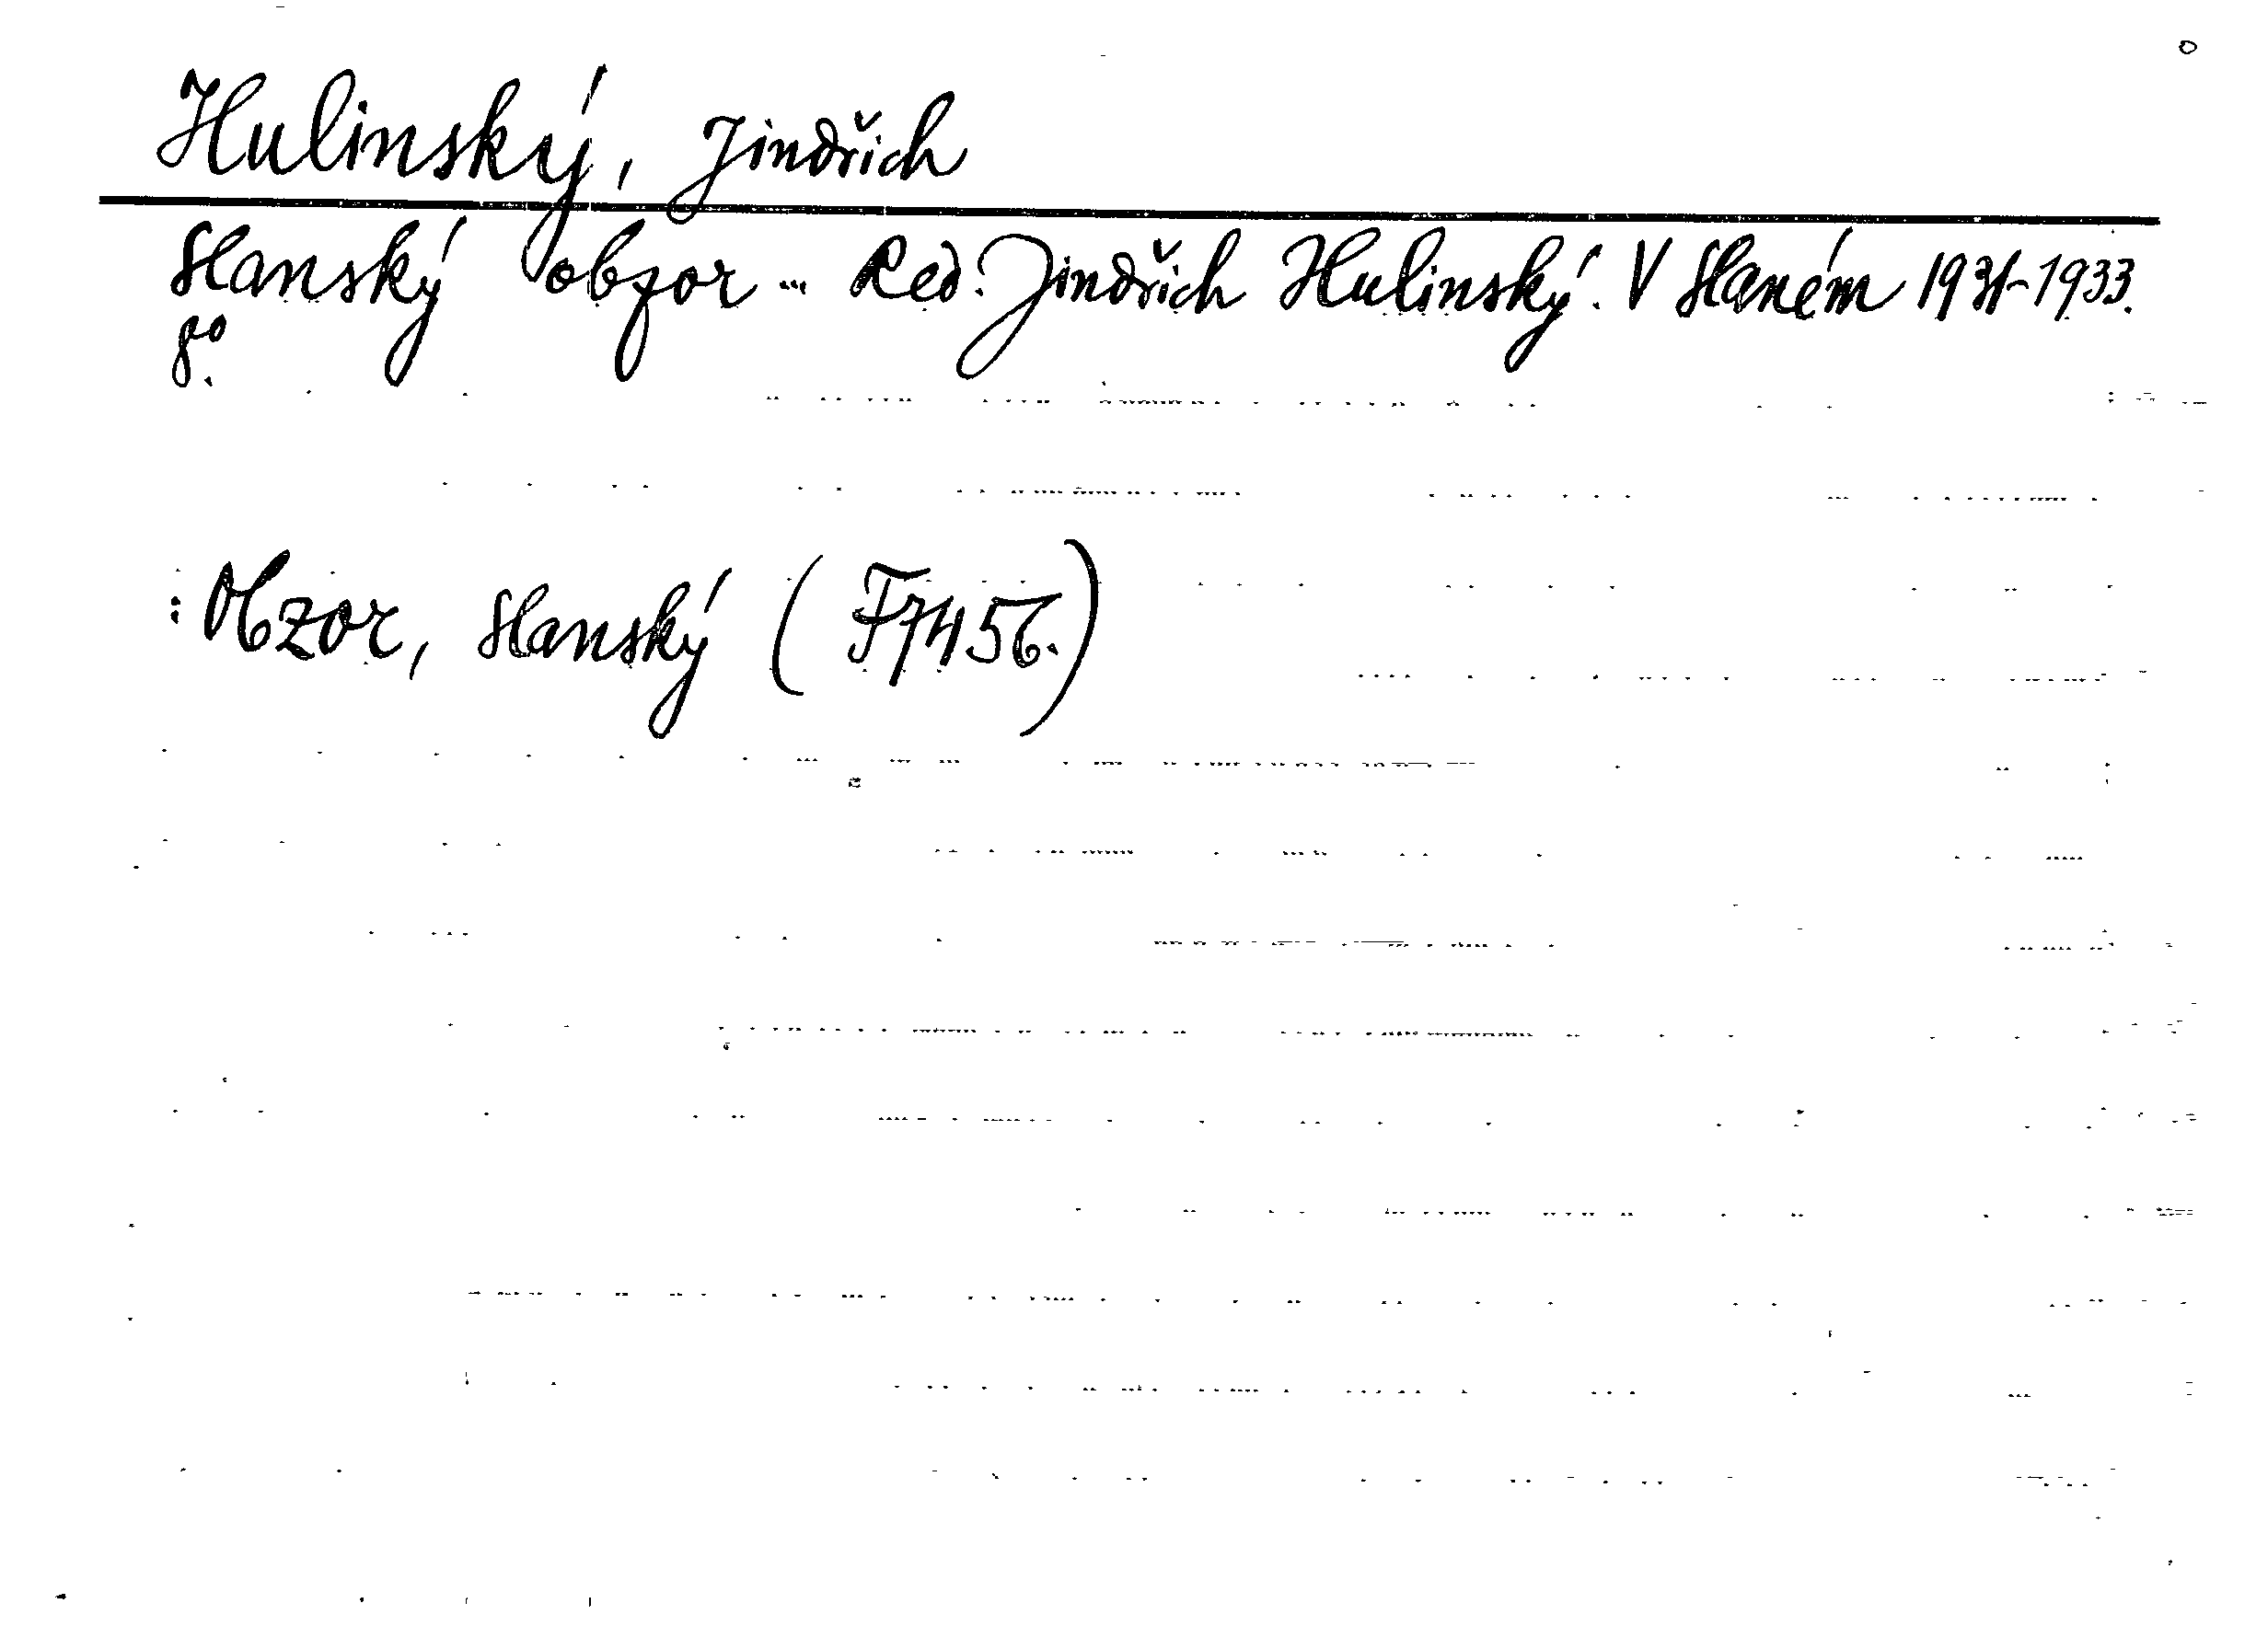 Hulinský, Jindřich
Slanský obzor ... Red. Jindřich Hulinský. V Slaném 1931-1933.
8º.
: Obzor, Slanský (F7456.)